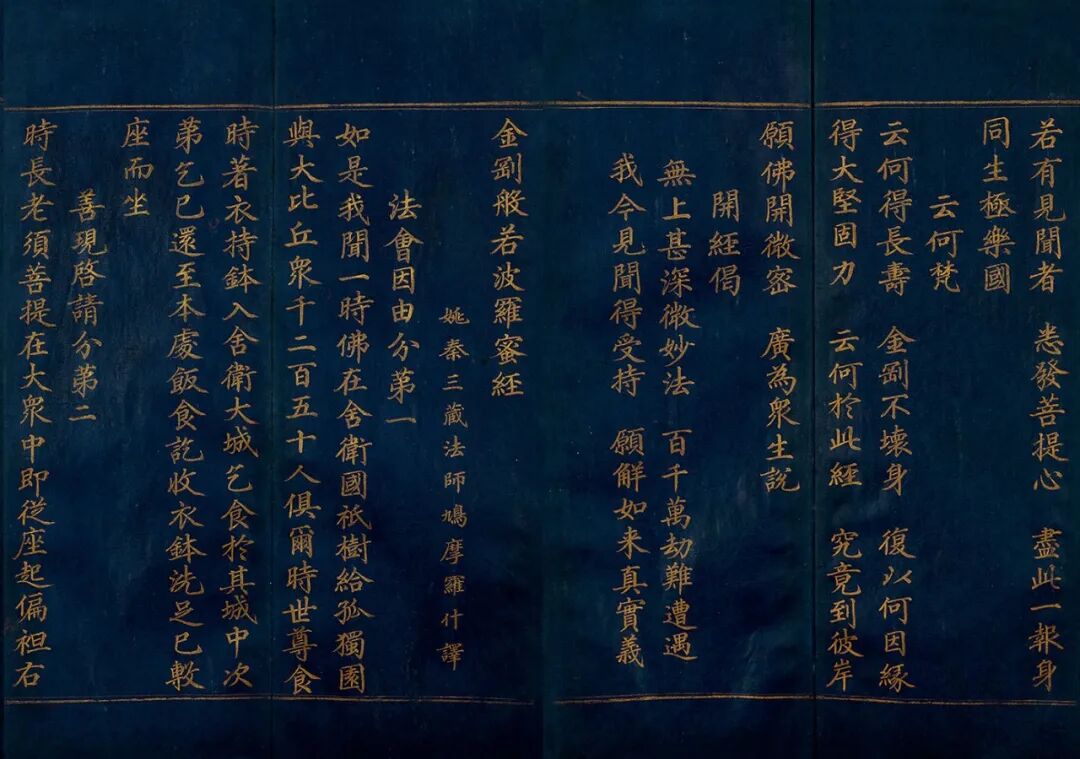 若有見聞者　悉發菩提心　盡此一報身
同生極樂國
云何梵
云何得長壽　金剛不壞身　復以何因緣
得大堅固力　云何於此經　究竟到彼岸
願佛開微密　廣為眾生說
開經偈
無上甚深微妙法　百千萬劫難遭遇
我今見聞得受持　願解如来真實義
金剛般若波羅蜜經
姚秦三藏法師鳩摩羅什譯
法會因由分第一
如是我聞一時佛在舍衛國祇樹給孤獨園
與大比丘衆千二百五十人俱爾時世尊食
時著衣持鉢入舍衛大城乞食於其城中次
第乞已還至本處飯食訖收衣鉢洗足已敷
座而坐
善現啓請分第二
時長老須菩提在大衆中即從座起偏袒右